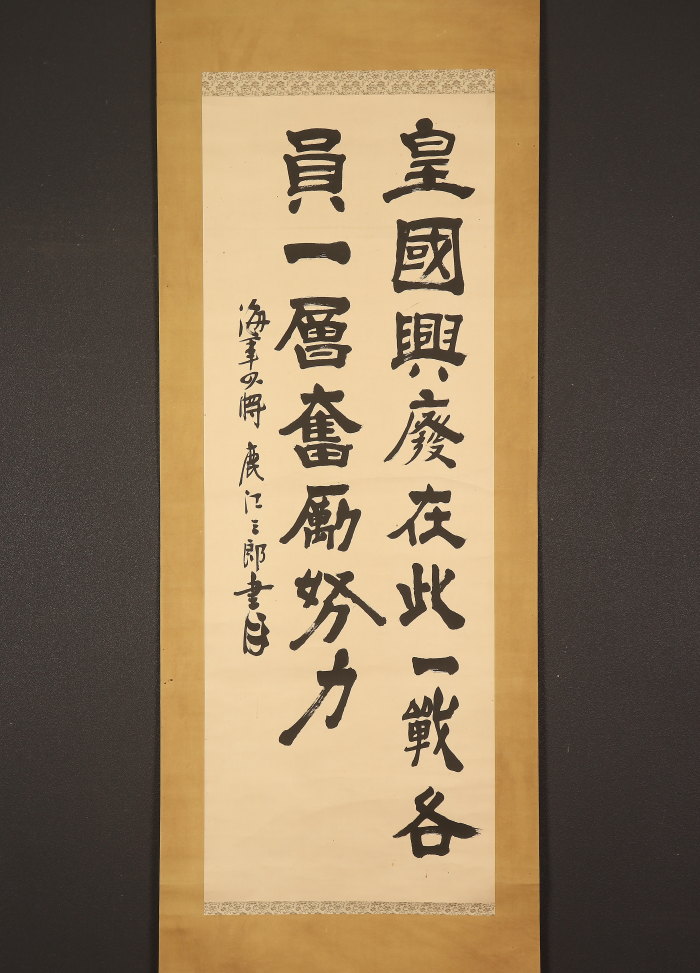 皇國興廢在此一戰各
員一層奮励努力
海軍少將 鹿江三郎書